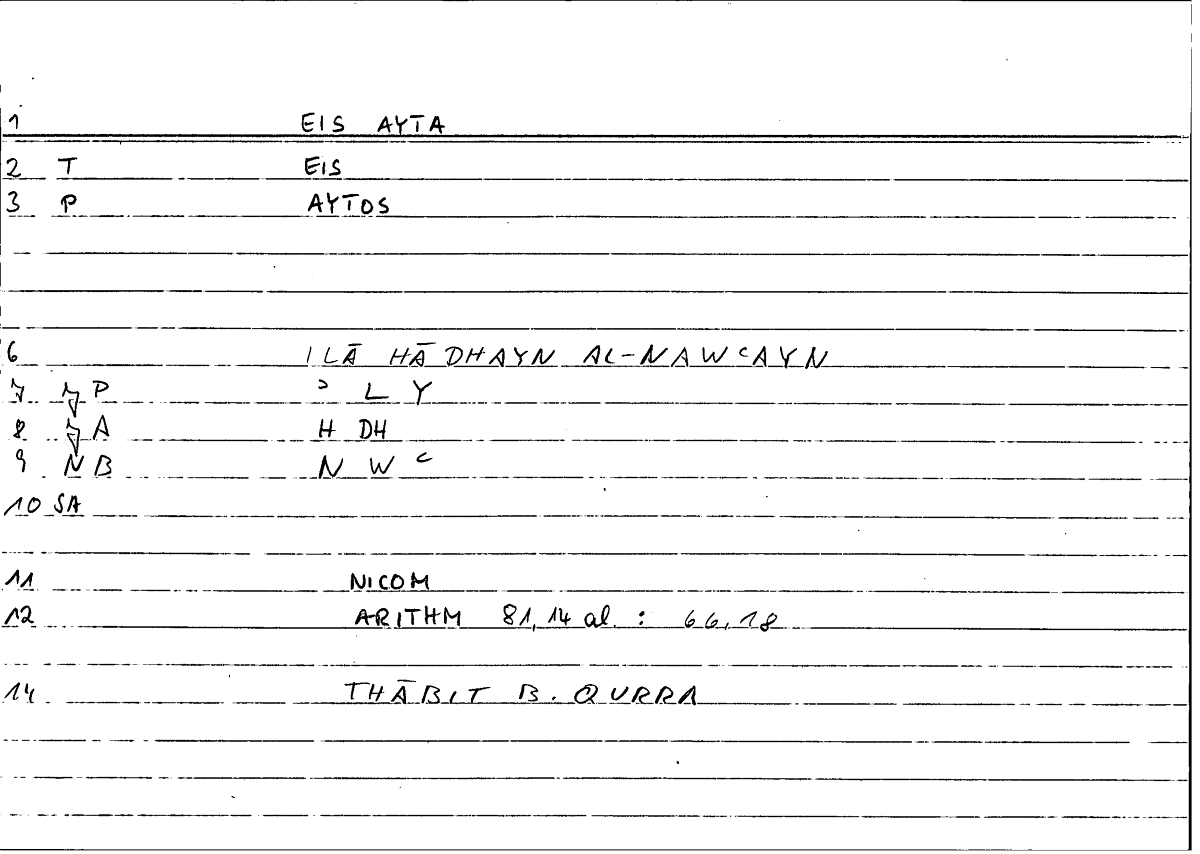 1 EIS AYTA
2 T EIS
3 P AYTOS
6 ILĀ HĀDHAYN AL-NAWʿAYN
7 P ʾ L Y
8 A H DH
9 NB N W ʿ
10 SA
11 NICOM
12 ARITHM 81,14 al. : 66,18
14 THĀBIT B. QURRA